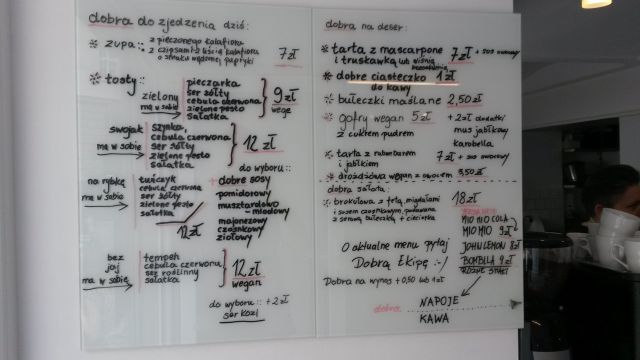 dobra do zjedzenia dziś:
* zupa:: z pieczonego kalafiora
z czipsami z liścia kalafiora
o smaku wędzonej papryki 7 zł
* tosty::
zielony
ma w sobie
pieczarka
ser żółty
cebula czerwona
zielone pesto
sałatka
9 zł
wege
swojak
ma w sobie
szynka,
cebula czerwona
ser żółty
zielone pesto
sałatka
12 zł
na rybkę
ma w sobie
tuńczyk
cebula czerwona
ser żółty
zielone pesto
sałatka
12 zł
do wyboru::
+ dobre sosy
pomidorowy
musztardowo-
miodowy
majonezowy
czosnkowy
ziołowy
bez
jaj
ma w sobie
tempeh
cebula czerwona
ser roślinny
sałatka
12 zł
wegan
do wyboru:: +2 zł
ser kozi
dobra na deser:
* tarta z mascarpone 7 zł + sos owocowy
i truskawką lub wiśnią
* dobre ciasteczko 1 zł
do kawy
* bułeczki maślane 2,50 zł
* gofry wegan 5 zł +2 zł dodatki
z cukrem pudrem mus jabłkowy
karobella
* tarta z rabarbarem 7 zł + sos owocowy
i jabłkiem
* drożdżówka wegan z owocem 3,50 zł
dobra sałata:
* brokułowa z fetą, migdałami 18 zł
i sosem czosnkowym, podawana
z serową bułeczką + ciecierzyca
MIO MIO COLA
MIO MIO 9 zł
JOHN LEMON 8 zł
BOMBILLA 9 zł
RÓŻNE SMAKI
O aktualne menu pytaj
Dobrą Ekipę :-)
Dobra na wynos +0,50 lub 1 zł
dobra
NAPOJE
KAWA